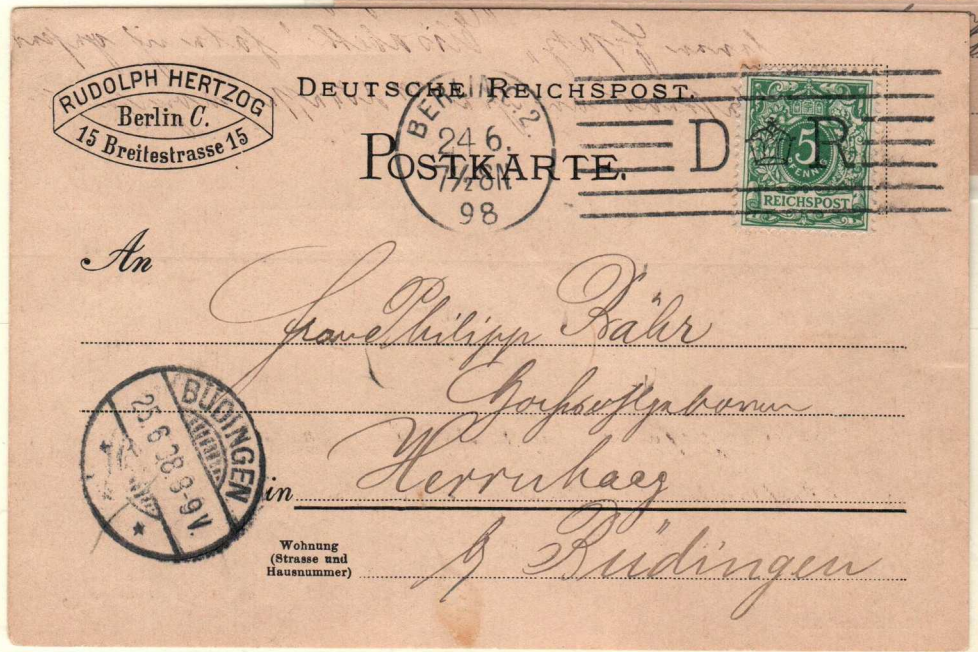 RUDOLPH HERTZOG
Berlin C.
15 Breitestrasse 15
DEUTSCHE REICHSPOST.
POSTKARTE.
BERLIN
24 6.
98
D R
5
PFENNIG
REICHSPOST
An
Frau Philipp Bähr
Hochwohlgeboren
in Herrnhaag
b/ Büdingen
Wohnung
(Strasse und
Hausnummer)
BÜDINGEN
25.6.98.8-9V.